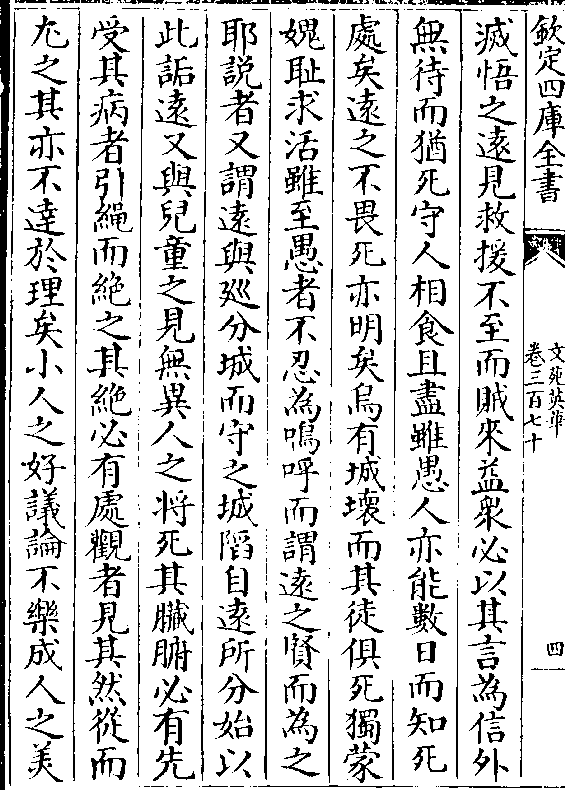 欽定四庫全書
文苑英華
卷三百七十
四
滅悟之遠見救援不至而賊來益衆必以其言為信外
無待而猶死守人相食且盡雖愚人亦能數日而知死
處矣遠之不畏死亦明矣烏有城壞而其徒俱死獨蒙
媿耻求活雖至愚者不忍為嗚呼而謂遠之賢而為之
耶説者又謂遠與廵分城而守之城䧟自遠所分始以
此詬遠又與兒童之見無異人之将死其臓腑必有先
受其病者引繩而絶之其絶必有處觀者見其然從而
尤之其亦不達於理矣小人之好議論不樂成人之美